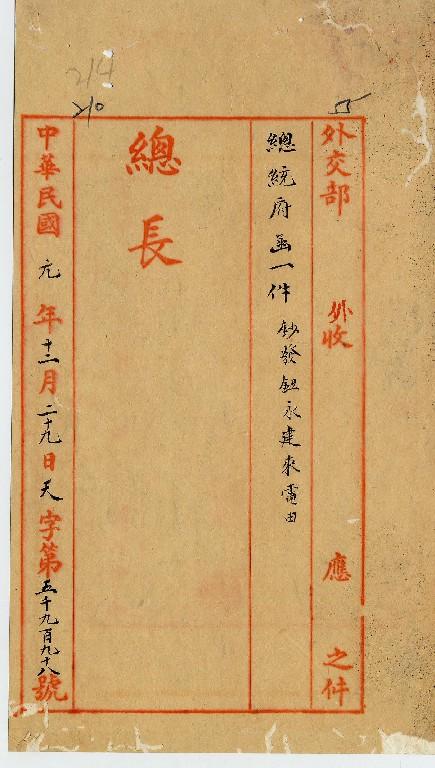 214
210
外交部 外收 應 之件
總統府函一件 鈔發鈕永建來電由
總長
中華民國元年十二月二十九日天字第五千九百九十八號